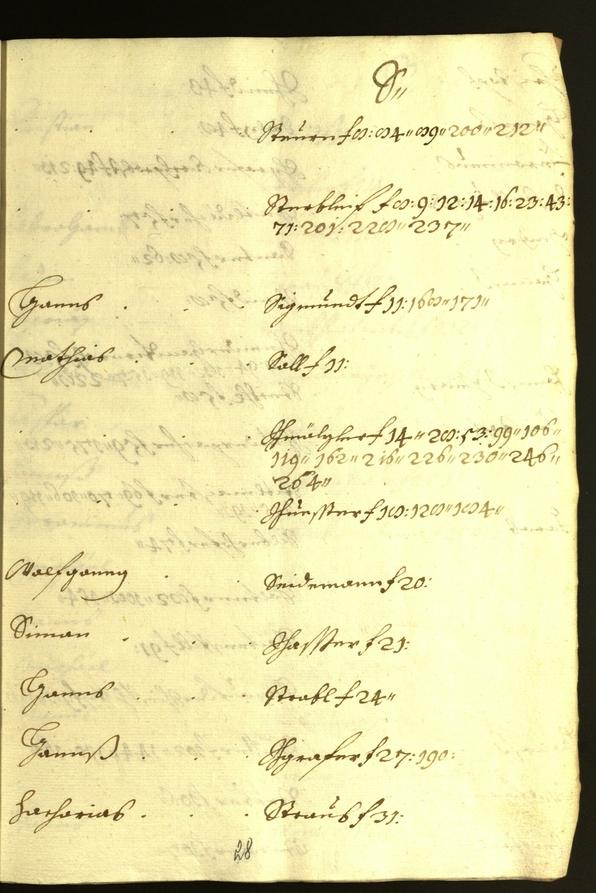 S„
Steurn f 8: 84„ 89„ 200„ 212„
Sterbleif f 8: 9: 12: 14: 16: 23: 43:
71: 201: 228„ 237„
Hanns . . Sigmundt f 11: 168„ 171„
Mathias . . Säll f 11:
Schmölzler f 14„ 28: 53: 99„ 106„
119„ 162„ 216„ 226„ 230„ 246„
264„
Schuesster f 18: 128„ 184„
Wolfganng Seidemann f 20:
Siman . . Schasster f 21:
Hanns . . Strobl f 24„
Hannß . . Schgrafer f 27: 190:
Zacharias . . Straus f 31:
28